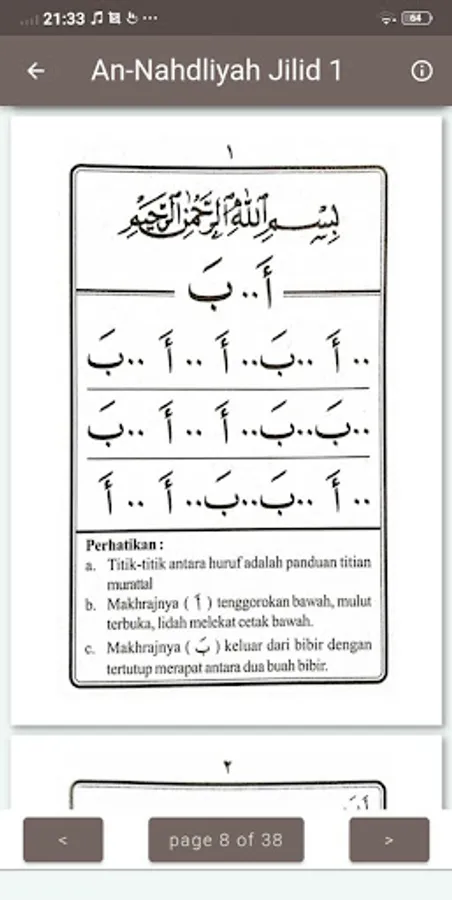 21:33 ... 64
← An-Nahdliyah Jilid 1
١
بِسْمِ اللهِ الرَّحْمٰنِ الرَّحِيْمِ
أَ .. بَ
.. أَ .. بَ .. أَ .. أَ .. بَ
.. بَ .. بَ .. أَ .. أَ .. بَ
.. أَ .. بَ .. بَ .. أَ .. أَ
Perhatikan :
a. Titik-titik antara huruf adalah panduan titian
murattal
b. Makhrajnya ( أَ ) tenggorokan bawah, mulut
terbuka, lidah melekat cetak bawah.
c. Makhrajnya ( بَ ) keluar dari bibir dengan
tertutup merapat antara dua buah bibir.
٢
< page 8 of 38 >